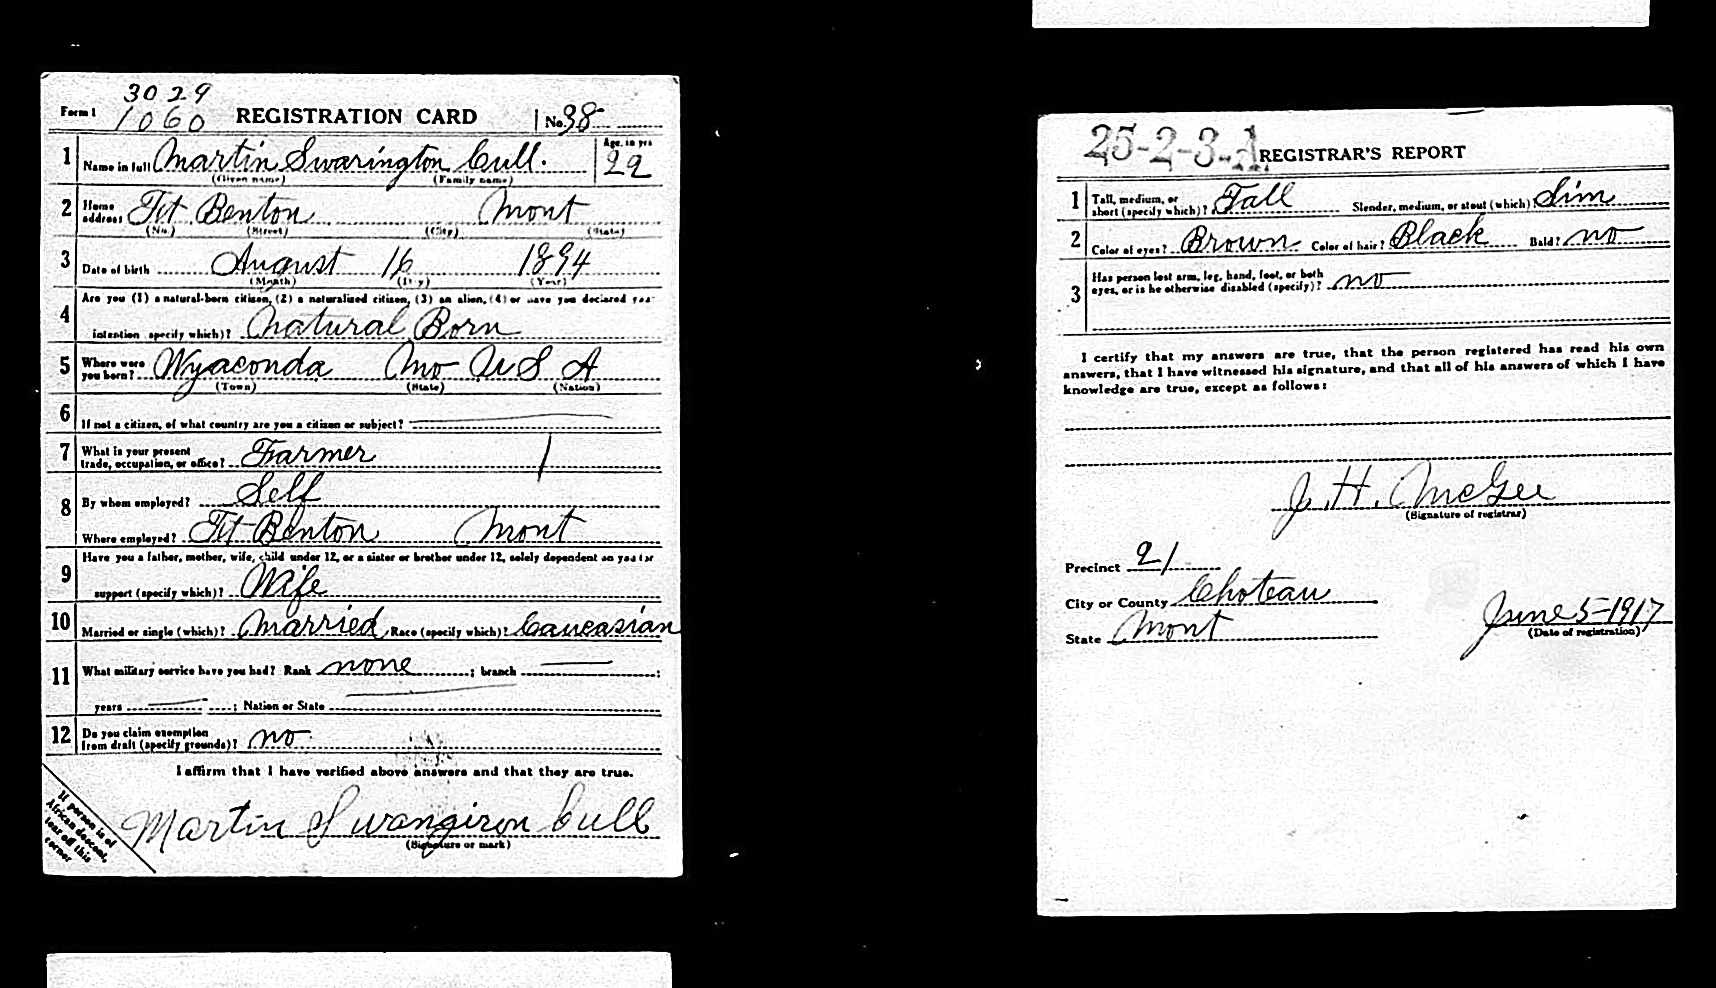 3029
Form 1 1060 REGISTRATION CARD No. 38
1 Name in full Martin Swarington Cull. Age, in yrs 22
(Given name) (Family name)
2 Home address Ft Benton Mont
(No.) (Street) (City) (State)
3 Date of birth August 16 1894
(Month) (Day) (Year)
4 Are you (1) a natural-born citizen, (2) a naturalized citizen, (3) an alien, (4) or have you declared your
intention specify which)? Natural Born
5 Where were you born? Wyaconda Mo U S A
(Town) (State) (Nation)
6 If not a citizen, of what country are you a citizen or subject?
7 What is your present trade, occupation, or office? Farmer
8 By whom employed? Self
Where employed? Ft Benton Mont
9 Have you a father, mother, wife, child under 12, or a sister or brother under 12, solely dependent on you for
support (specify which)? Wife
10 Married or single (which)? Married Race (specify which)? Caucasian
11 What military service have you had? Rank none ; branch ;
years ; Nation or State
12 Do you claim exemption from draft (specify grounds)? no
I affirm that I have verified above answers and that they are true.
Martin Swangiron Cull
(Signature or mark)
If person is of
African descent,
tear off this
corner
25-2-3-A REGISTRAR'S REPORT
1 Tall, medium, or short (specify which)? Tall Slender, medium, or stout (which) Slim
2 Color of eyes? Brown Color of hair? Black Bald? no
3 Has person lost arm, leg, hand, foot, or both eyes, or is he otherwise disabled (specify)? no
I certify that my answers are true, that the person registered has read his own
answers, that I have witnessed his signature, and that all of his answers of which I have
knowledge are true, except as follows:
J. H. McGee
(Signature of registrar)
Precinct 21
City or County Choteau
State Mont
June 5-1917
(Date of registration)